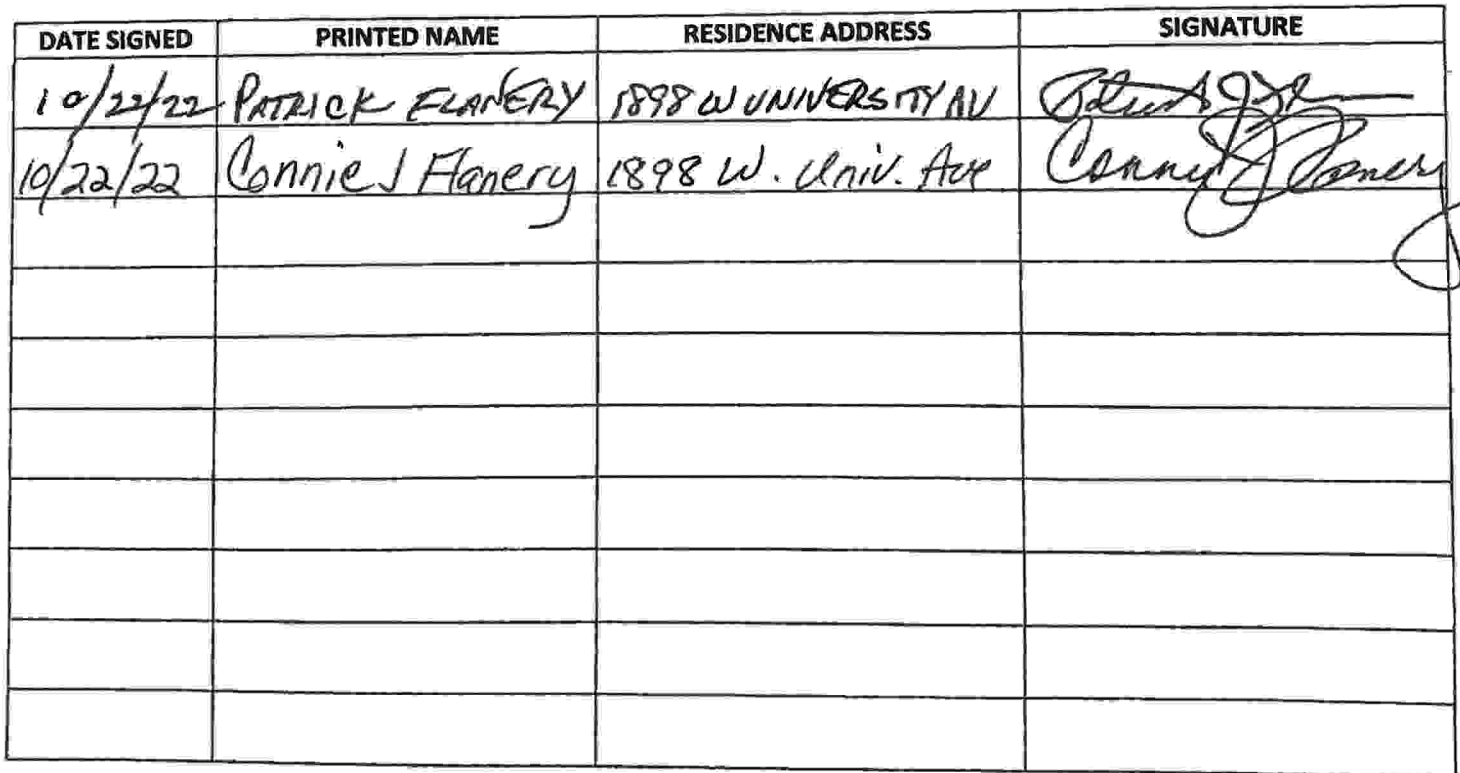 DATE SIGNED PRINTED NAME RESIDENCE ADDRESS SIGNATURE
10/22/22 PATRICK FLANERY 1898 W UNIVERSITY AV
10/22/22 Connie J Flanery 1898 W. Univ. Ave